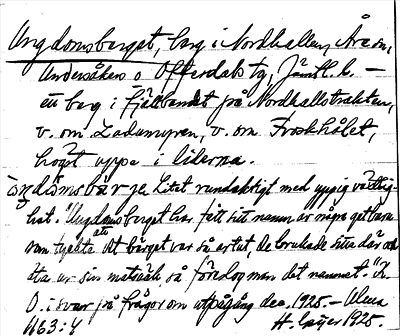 Ungdomsberget, berg i Nordhallen, Åre sn,
Undersåkers o Offerdals tg, Jämtl. l. —
ett berg i fjällbandet på Nordhallstrakten,
v. om Ladamyren, v. om Froskhålet,
högst uppe i liderna.
Litet rundaktigt med yppig växtlig-
het. "Ungdomsberget har fått sitt namn av några getbara
som tyckte att berget var så artut, de brukade sitta där och
äta av sin matsäck så föreslog man det namnet."
O. i svar på frågor om utpågång dec. 1925. —
H. Geijer 1925.